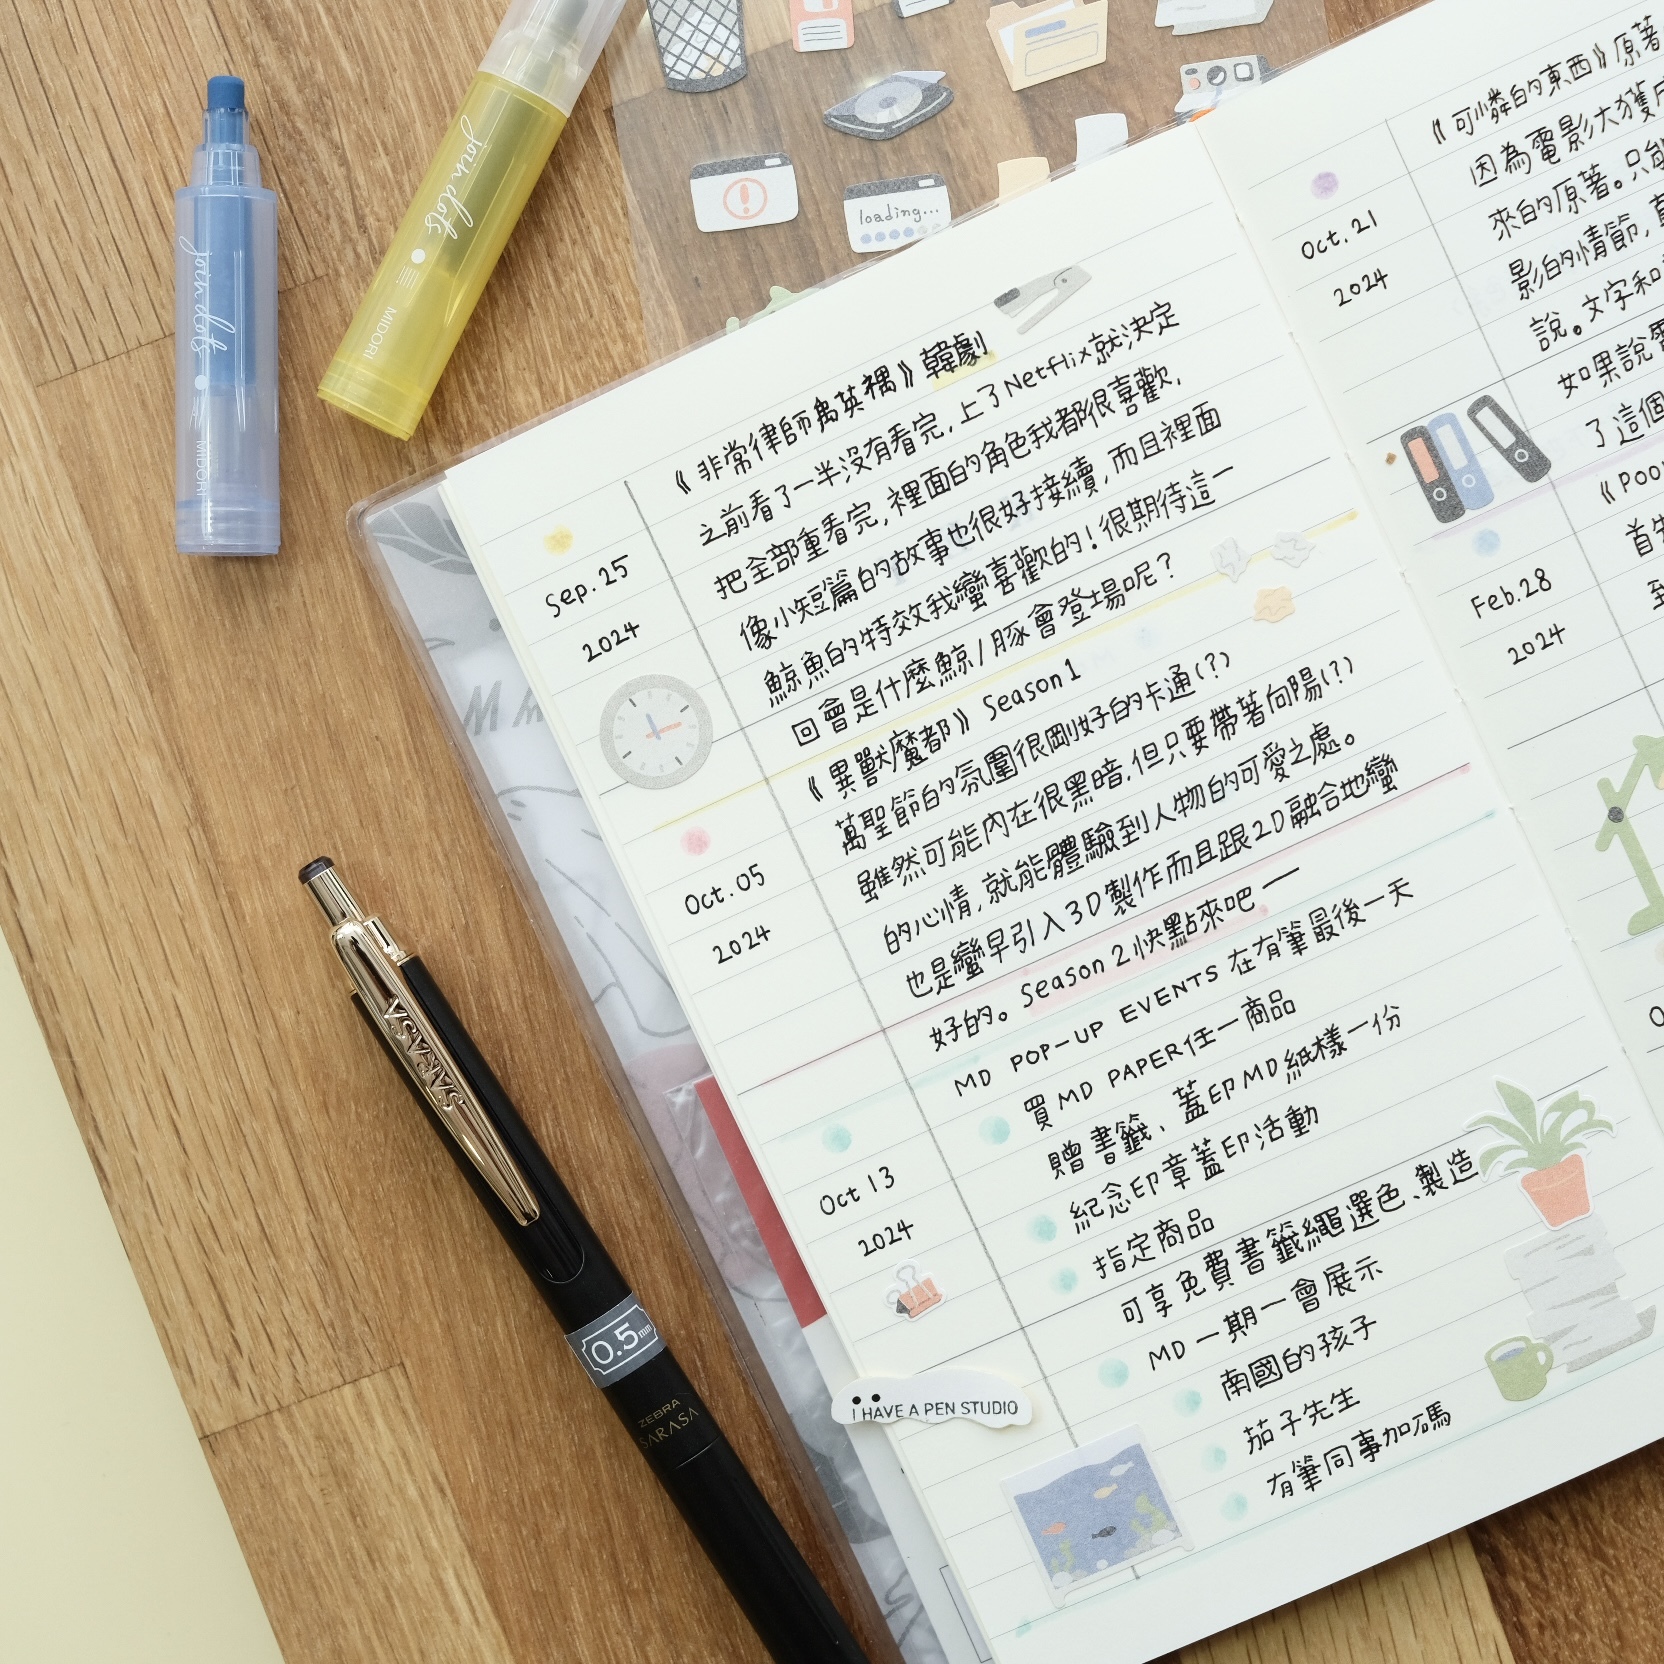 join dots
MIDORI
join dots
MIDORI
loading...
SARASA
SARASA
0.5mm
ZEBRA
SARASA
Sep. 25
2024
《非常律師禹英禑》韓劇
之前看了一半沒有看完,上了Netflix就決定
把全部重看完,裡面的角色我都很喜歡,
像小短篇的故事也很好接續,而且裡面
鯨魚的特效我蠻喜歡的!很期待這一
回會是什麼鯨/豚會登場呢?
Oct. 05
2024
《異獸魔都》Season 1
萬聖節的氛圍很剛好的卡通(?)
雖然可能內在很黑暗,但只要帶著向陽(?)
的心情,就能體驗到人物的可愛之處。
也是蠻早引入3D製作而且跟2D融合地蠻
好的。Season 2快點來吧 —
Oct 13
2024
MD POP-UP EVENTS 在有筆最後一天
買MD PAPER任一商品
贈書籤、蓋印MD紙樣一份
紀念印章蓋印活動
指定商品
可享免費書籤繩選色、製造
MD 一期一會展示
南國的孩子
茄子先生
有筆同事加碼
I HAVE A PEN STUDIO
Oct. 21
2024
《可憐的東西》原著
因為電影大獲
來的原著。只能
影的情節,
說。文字和
如果說
了這個
Feb. 28
2024
《Poor
首先
到